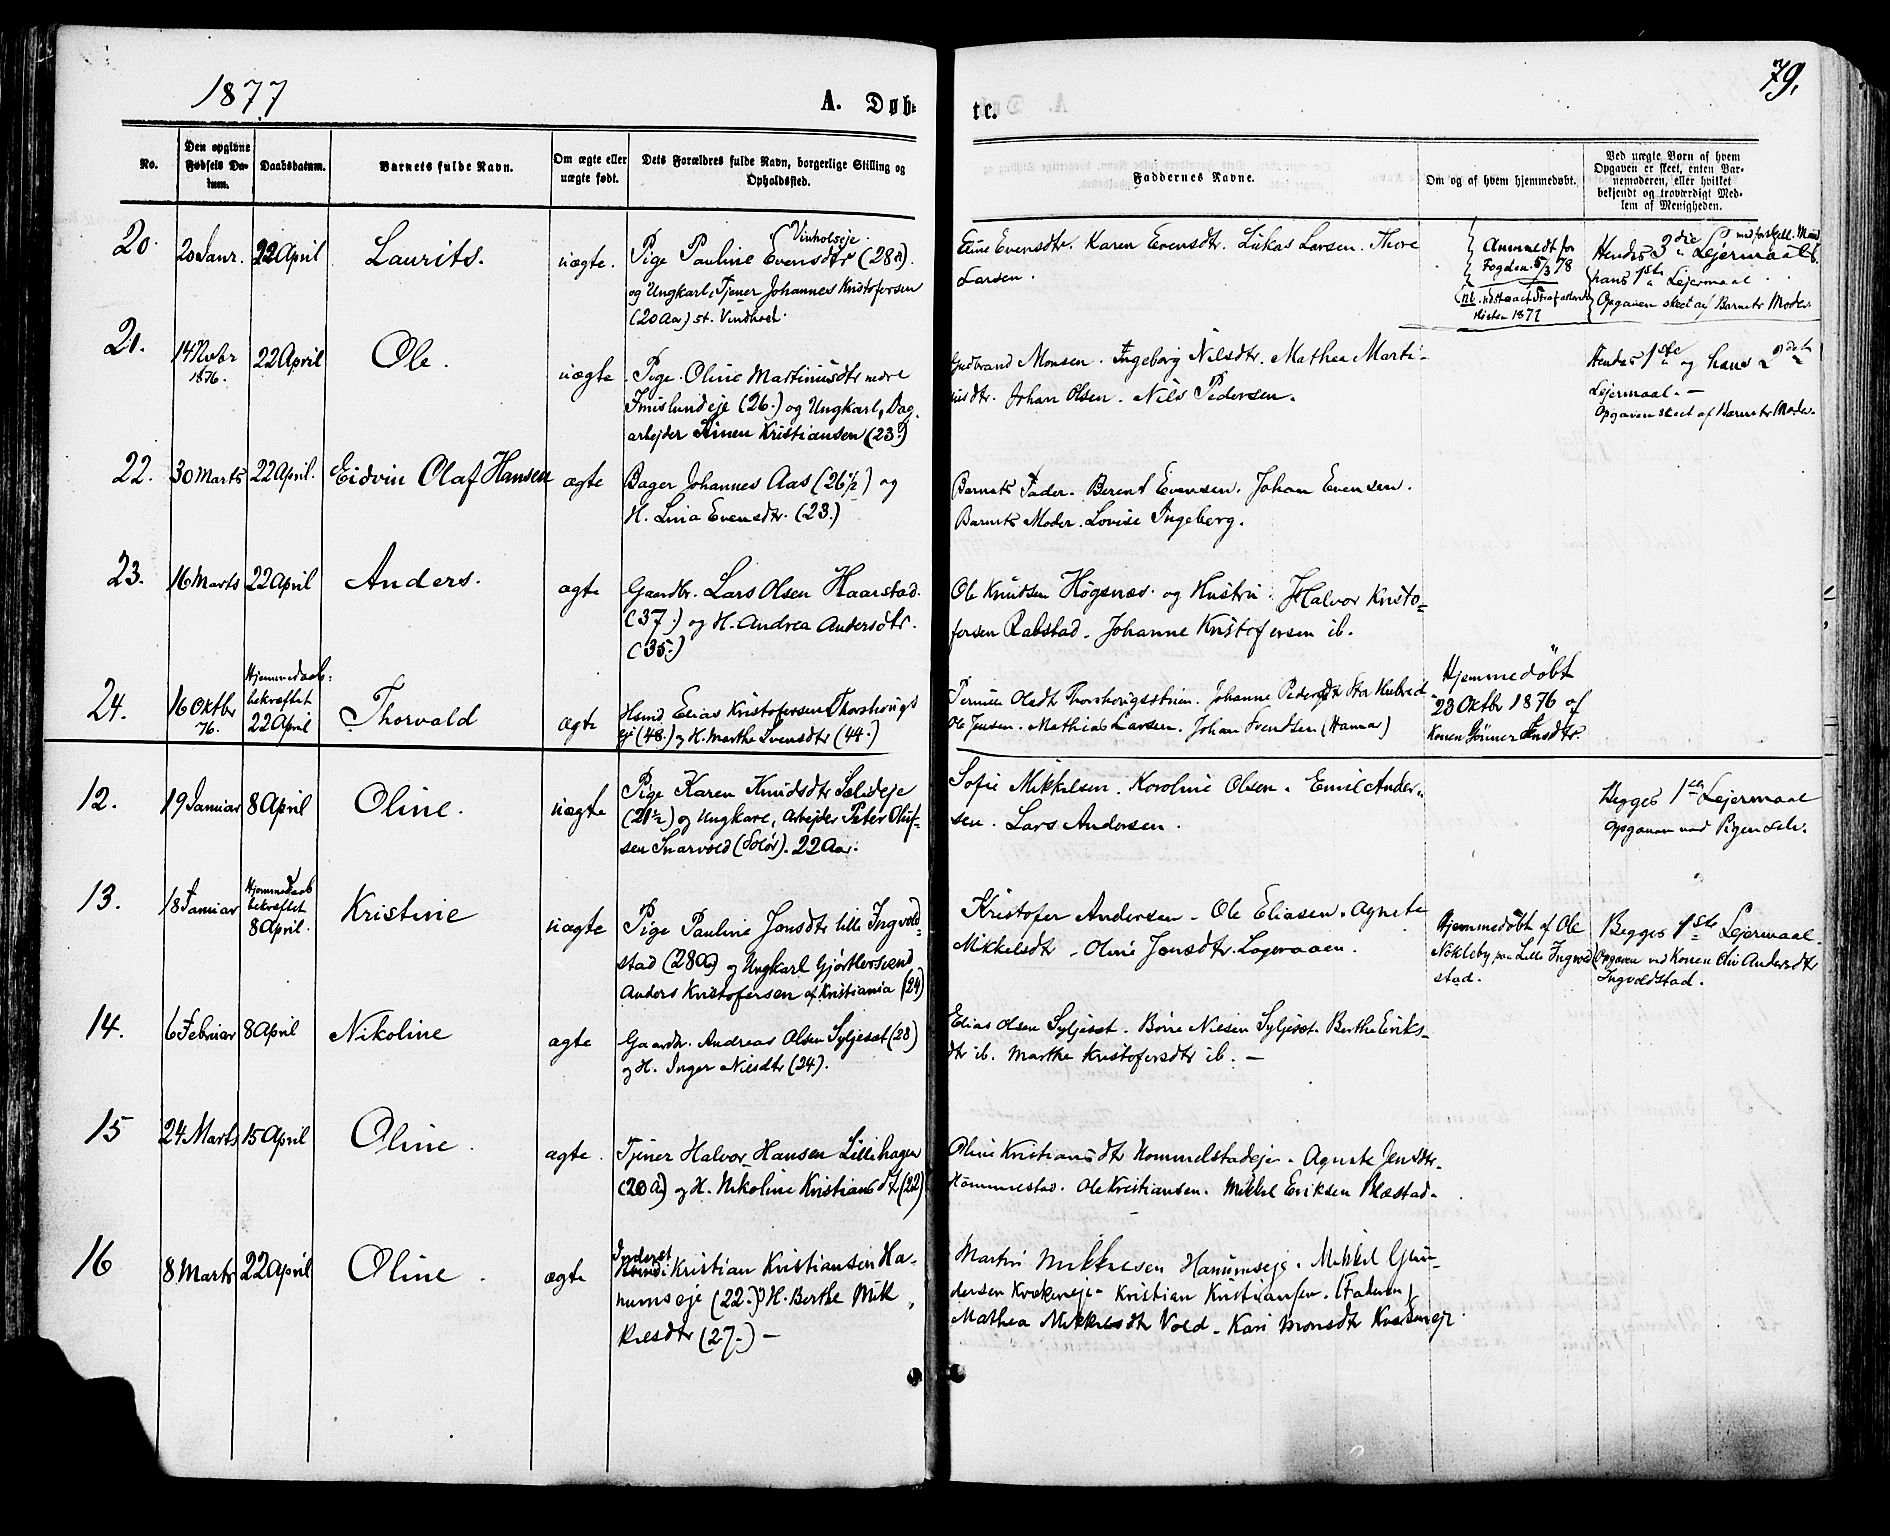 1877
A. Døb-
tc.
79.
No.
Den opgivne
Fødsels Da-
tum.
Daabsdatum.
Barnets fulde Navn.
Om ægte eller
uægte født.
Dets Forældres fulde Navn, borgerlige Stilling og
Opholdssted.
Faddernes Navne.
Om og af hvem hjemmedøbt.
Ved uægte Børn af hvem
Opgaven er skeet, enten Bar-
nemoderen, eller hvilket
bekjendt og troværdigt Med-
lem af Menigheden.
20. 20 Janr. 22 April Laurits. uægte.
Vinholseje.
Pige Pauline Evensdtr (28 a).
og Ungkarl, Tjener Johannes Kristofersen
(20 Aar) st.
Evensdtr. Karen Evensdtr. Lukas Larsen. Thore
Larsen.
Anmeldt for
Fogden 5/3 78
1877
Hendes 3die Lejermaal
hans 1ste Lejermaal
Opgaven skeet af Barnets Moder.
21. 14 Novbr 1876. 22 April Ole. uægte
Pige Oline Martinusdtr nedre
Imislundeje (26.) og Ungkarl, Dag-
arbejder Simen Kristiansen (23.)
Gudbrand Monsen. Ingeborg Nilsdtr. Mathea Marti-
nusdtr. Johan Olsen. Nils Pedersen.
Hendes 1ste og hans 2det
Lejermaal. —
Opgaven skeet af Barnets Moder.
22. 30 Marts 22 April. Eidvin Olaf Hansen ægte
Bager Johannes Aas (26 1/2) og
H. Lina Evensdtr. (23.)
Barnets Fader. Berent Evensen. Johan Evensen.
Barnets Moder. Lovise Ingeberg.
23. 16 Marts 22 April Anders. ægte
Gaardbr. Lars Olsen Haarstad.
(37.) og H. Andrea Andersdtr.
(35.)
Ole Knudsen Høgsnæs. og Hustru. Halvor Kristo-
fersen Rabstad. Johanne Kristofersen ib.
24. 16 Oktbr 76. Hjemmedaab
bekræftet
22 April Thorvald ægte
Elias Kristofersen
(48.) og H. Marthe Svensdtr (44.)
Pernille Olsdtr Johanne Pedersdtr
Ole Jensen. Mathias Larsen. Johan Svendsen (Hamar)
Hjemmedøbt
23 Oktbr 1876 af
Konen
12. 19 Januar 8 April Oline. uægte
Pige Karen Knudsdtr Sælideje
(21 1/2) og Ungkarl, Arbejder Peter Oluf-
sen Snarvold (Solør). 22 Aar.
Sofie Mikkelsen. Karoline Olsen. Emil Ander-
sen. Lars Andersen.
Begges 1ste Lejermaal
Opgaven ved Pigen selv.
13. 18 Januar Hjemmedaab
bekræftet
8 April. Kristine uægte
Pige Pauline Jonsdtr lille Ingvold-
stad (28 Aar) og Ungkarl Gjørtlersvend
Anders Kristofersen af Kristiania (24)
Kristofer Andersen. Ole Eliasen. Agnete
Mikkelsdtr. Oline Jonsdtr.
Hjemmedøbt af Ole
Nökleby paa Lille Ingvold
stad.
Begges 1ste Lejermaal.
Opgaven ved Konen Andersdtr
Ingvoldstad.
14. 6 Februar 8 April Nikoline ægte
Gaardbr. Andreas Olsen Syljeset (28)
og H. Inger Nilsdtr (24).
Elias Olsen Syljeset. Børre Nilsen Syljeset. Berthe Eriks-
dtr ib. Marthe Kristofersdtr ib. —
15 24 Marts 15 April Oline. ægte.
Tjener Halvor Hansen Lillehagen
(20 Aar) og H. Nikoline Kristiansdtr (22)
Oline Kristiansdtr Hommelstadeje. Agnete Jensdtr.
Hommelstad. Ole Kristiansen. Mikkel Eriksen Blæstad.
16 8 Marts 22 April Oline. ægte
Inderst
Kristian Kristiansen Ha-
numseje (22.) H. Berthe Mik-
kelsdtr (27.) —
Martin Mikkelsen Hanumseje. Mikkel
Kristian Kristiansen. (Faderen)
Mathea Mikkelsdtr Vold. Kari Monsdtr